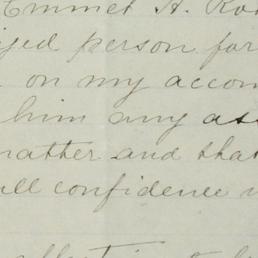 Emmet A. Ro
ged person for
on my accou
him any as
matter and that
all confidence